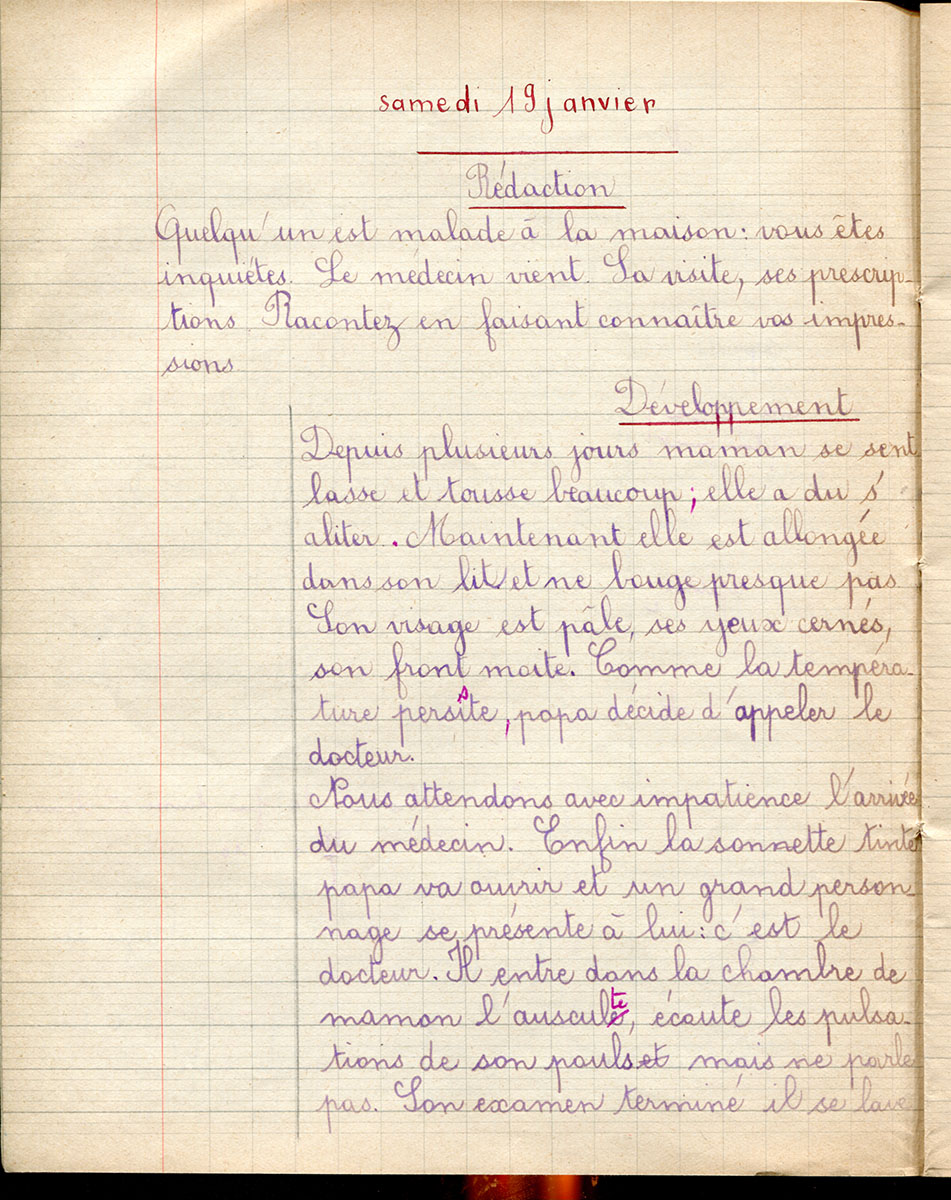 samedi 19 janvier
Rédaction
Quelqu'un est malade à la maison : vous êtes
inquiétes. Le médecin vient. Sa visite, ses prescrip-
tions. Racontez en faisant connaître vos impres-
sions
Développement
Depuis plusieurs jours maman se sent
lasse et tousse beaucoup ; elle a du s'
aliter. Maintenant elle est allongée
dans son lit et ne bouge presque pas
Son visage est pâle, ses yeux cernés,
son front moite. Comme la tempéra-
ture persiste, papa décide d'appeler le
docteur.
Nous attendons avec impatience l'arrivée
du médecin. Enfin la sonnette tinte
papa va ouvrir et un grand person-
nage se présente à lui : c'est le
docteur. Il entre dans la chambre de
maman l'ausculte, écoute les pulsa-
tions de son pouls et mais ne parle
pas. Son examen terminé il se lave